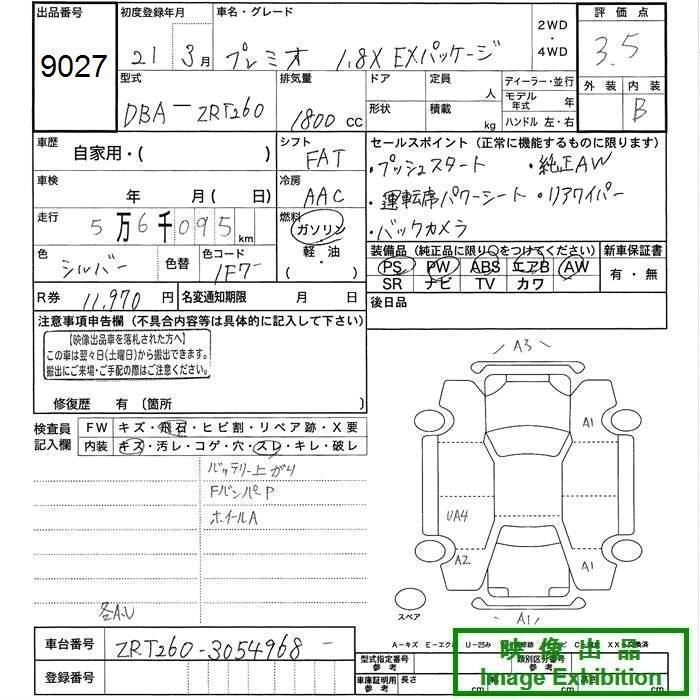 出品番号
9027
初度登録年月
21年3月
車名・グレード
プレミオ 1.8X EXパッケージ
2WD・4WD
評価点
3.5
外装 内装
B
型式
DBA-ZRT260
排気量
1800cc
ドア
形状
定員 人
積載 kg
ディーラー・並行
モデル年式 年
ハンドル 左・右
車歴
自家用・( )
シフト
FAT
車検
年 月(日)
冷房
AAC
走行
5万6千095km
燃料
ガソリン
・軽・油
( )
色
シルバー
色替
色コード
1F7
R券 11,970円
名変通知期限 月 日
セールスポイント(正常に機能するものに限ります)
・プッシュスタート ・純正AW
・運転席パワーシート ・リアワイパー
・バックカメラ
装備品(純正品に限り○をつけてください)
PS PW ABS エアB AW
SR ナビ TV カワ
新車保証書
有・無
後日品
注意事項申告欄(不具合内容等は具体的に記入して下さい)
【映像出品車を落札された方へ】
この車は翌々日(土曜日)から搬出できます。
搬出にご来場・ご手配の際はご注意ください。
修復歴 有(箇所 )
検査員記入欄
FW キズ・飛石・ヒビ割・リペア跡・X要
内装 キズ・汚レ・コゲ・穴・スレ・キレ・破レ
バッテリー上がり
FバンパーP
ホイールA
各A.U
A3
A1
UA4
A2
A1
A1
スペア
車台番号
ZRT260-3054968
登録番号
A-キズ E-エクボ U-凹み
型式指定番号
参考
類別区分番号
参考
車庫証明用
参考
長さ
cm
cm
cm
映像出品
Image Exhibition